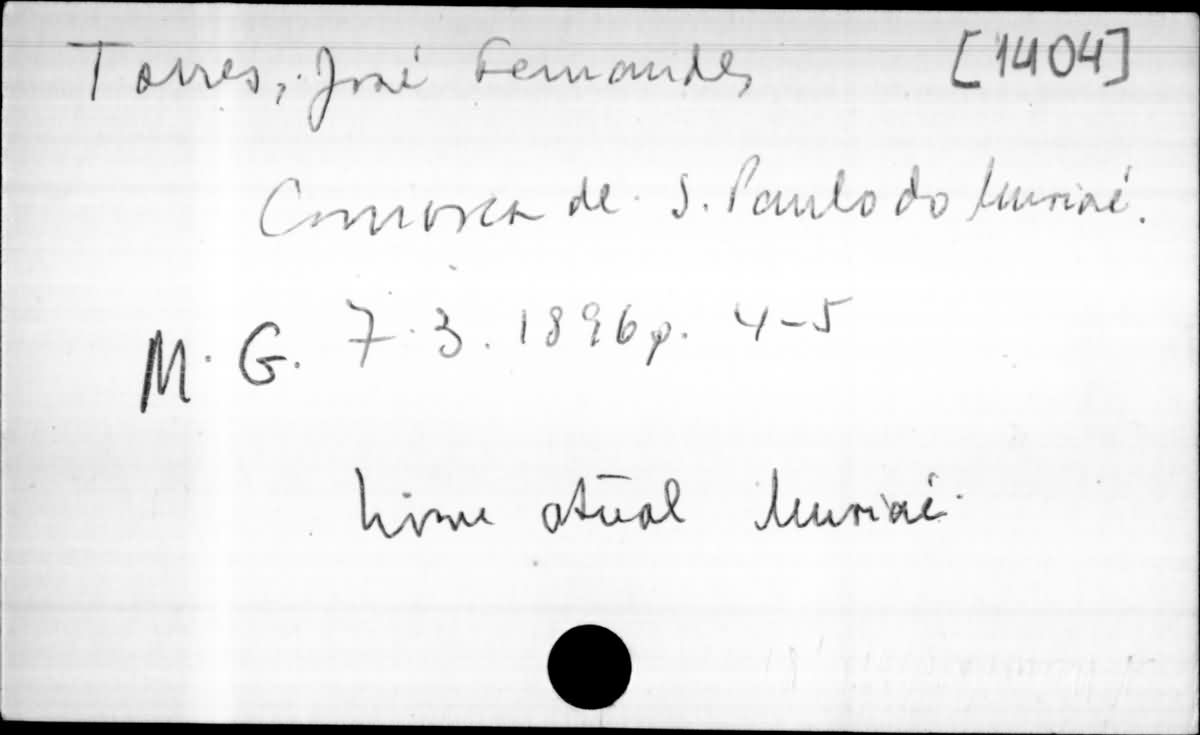 Torres, José Fernandes [1404]
Comarca de S. Paulo do Muriaé.
M. G. 7.3.1896 p. 4-5
Nome atual Muriaé